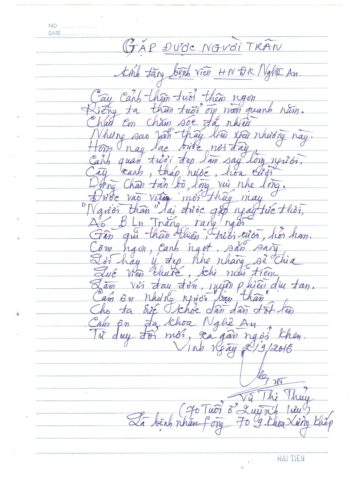 NO
DATE
GẶP ĐƯỢC NGƯỜI THÂN
Kính tặng bệnh viện HNĐK Nghệ An.
Cây cảnh thân tươi thêm ngon
Riêng ta thân tuổi ốm mòn quanh năm.
Cháu em chăm sóc đã nhiều
Nhưng sao vẫn thấy
Hôm nay lạc bước nơi đây
Cảnh quan tươi đẹp làm say lòng người.
Cây xanh, tháp nước, hoa cười
Dừng chân tản bộ lòng vui, nhẹ lòng.
Được vào viện mới thấy may
"Người thân" lại được gặp ngay tức thời,
Áo Bờ Lu Trắng, rạng ngời
Gần gũi thân thiện, tươi cười, hỏi han.
Cơm ngon, canh ngọt, sẵn sàng
Lời hay ý đẹp nhẹ nhàng sẻ chia
Lúc viên thuốc, khi mũi tiêm
Làm vơi đau đớn, muộn phiền tiêu tan.
Cảm ơn những người "bạn thân"
Cho ta sức khỏe dần dần tốt lên
Cảm ơn đa khoa Nghệ An
Tư duy đổi mới, xa gần ngợi khen.
Vinh ngày 2/9/2016
Vũ Thị Thủy
(70 Tuổi ở Quỳnh Lưu)
Là bệnh nhân phòng 70 g. Khoa Xương Khớp
HAI TIEN